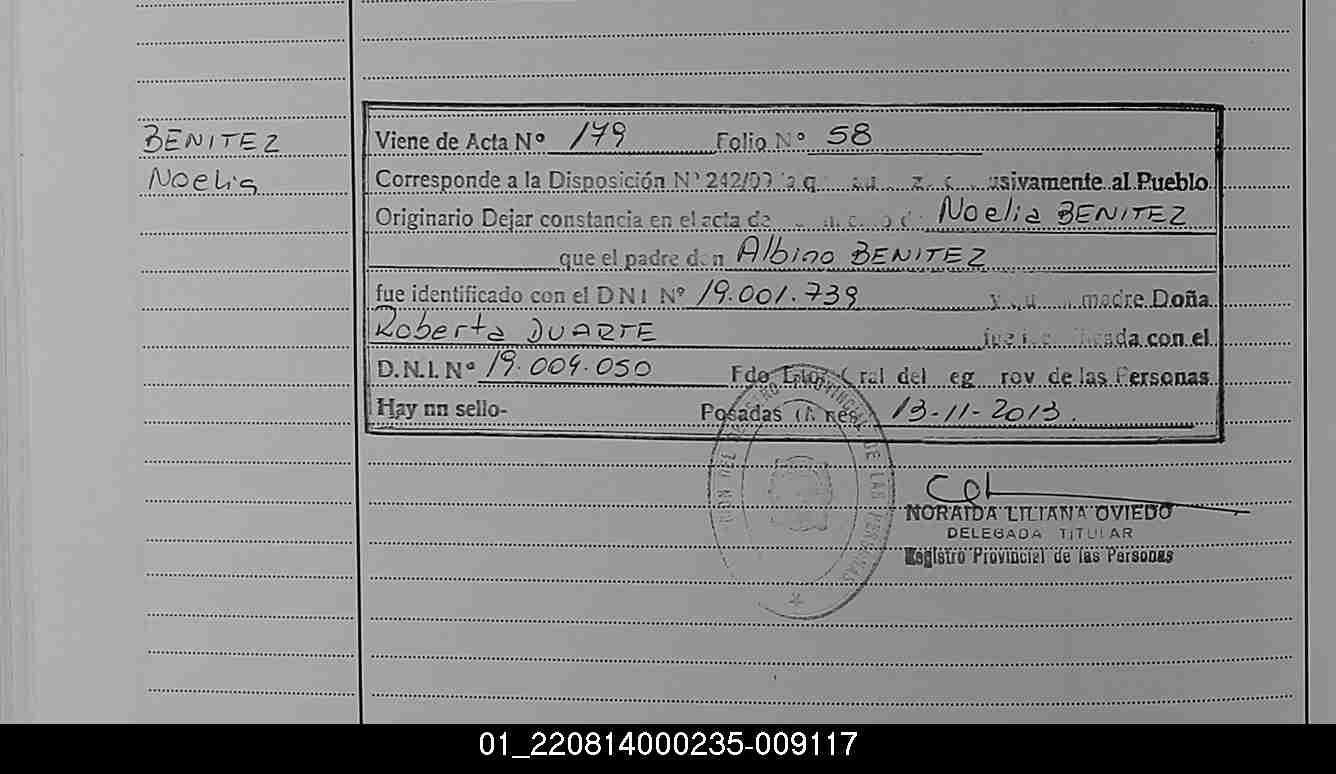 BENITEZ
Noelia
Viene de Acta Nº 179 Folio Nº 58
Corresponde a la Disposición Nº 242/09 al Pueblo
Originario Dejar constancia en el acta de Noelia BENITEZ
que el padre don Albino BENITEZ
fue identificado con el DNI Nº 19.001.739 y madre Doña
Roberta DUARTE fue con el
D.N.I. Nº 19.009.050 Fdo de las Personas
Hay un sello- Posadas 13-11-2013.
DE LAS PERSONAS
NORAIDA LILIANA OVIEDO
DELEGADA TITULAR
Registro Provincial de las Personas
01_220814000235-009117